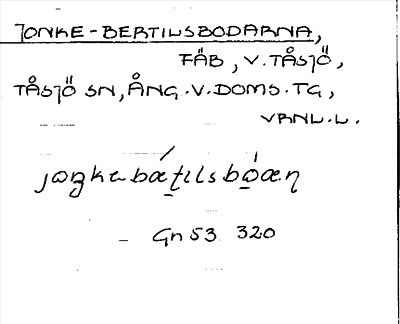 JONKE-BERTILSBODARNA,
FÄB, V. TÅSJÖ,
TÅSJÖ SN, ÅNG. V. DOMS. TG,
VRNL. L.
Gn 53 320